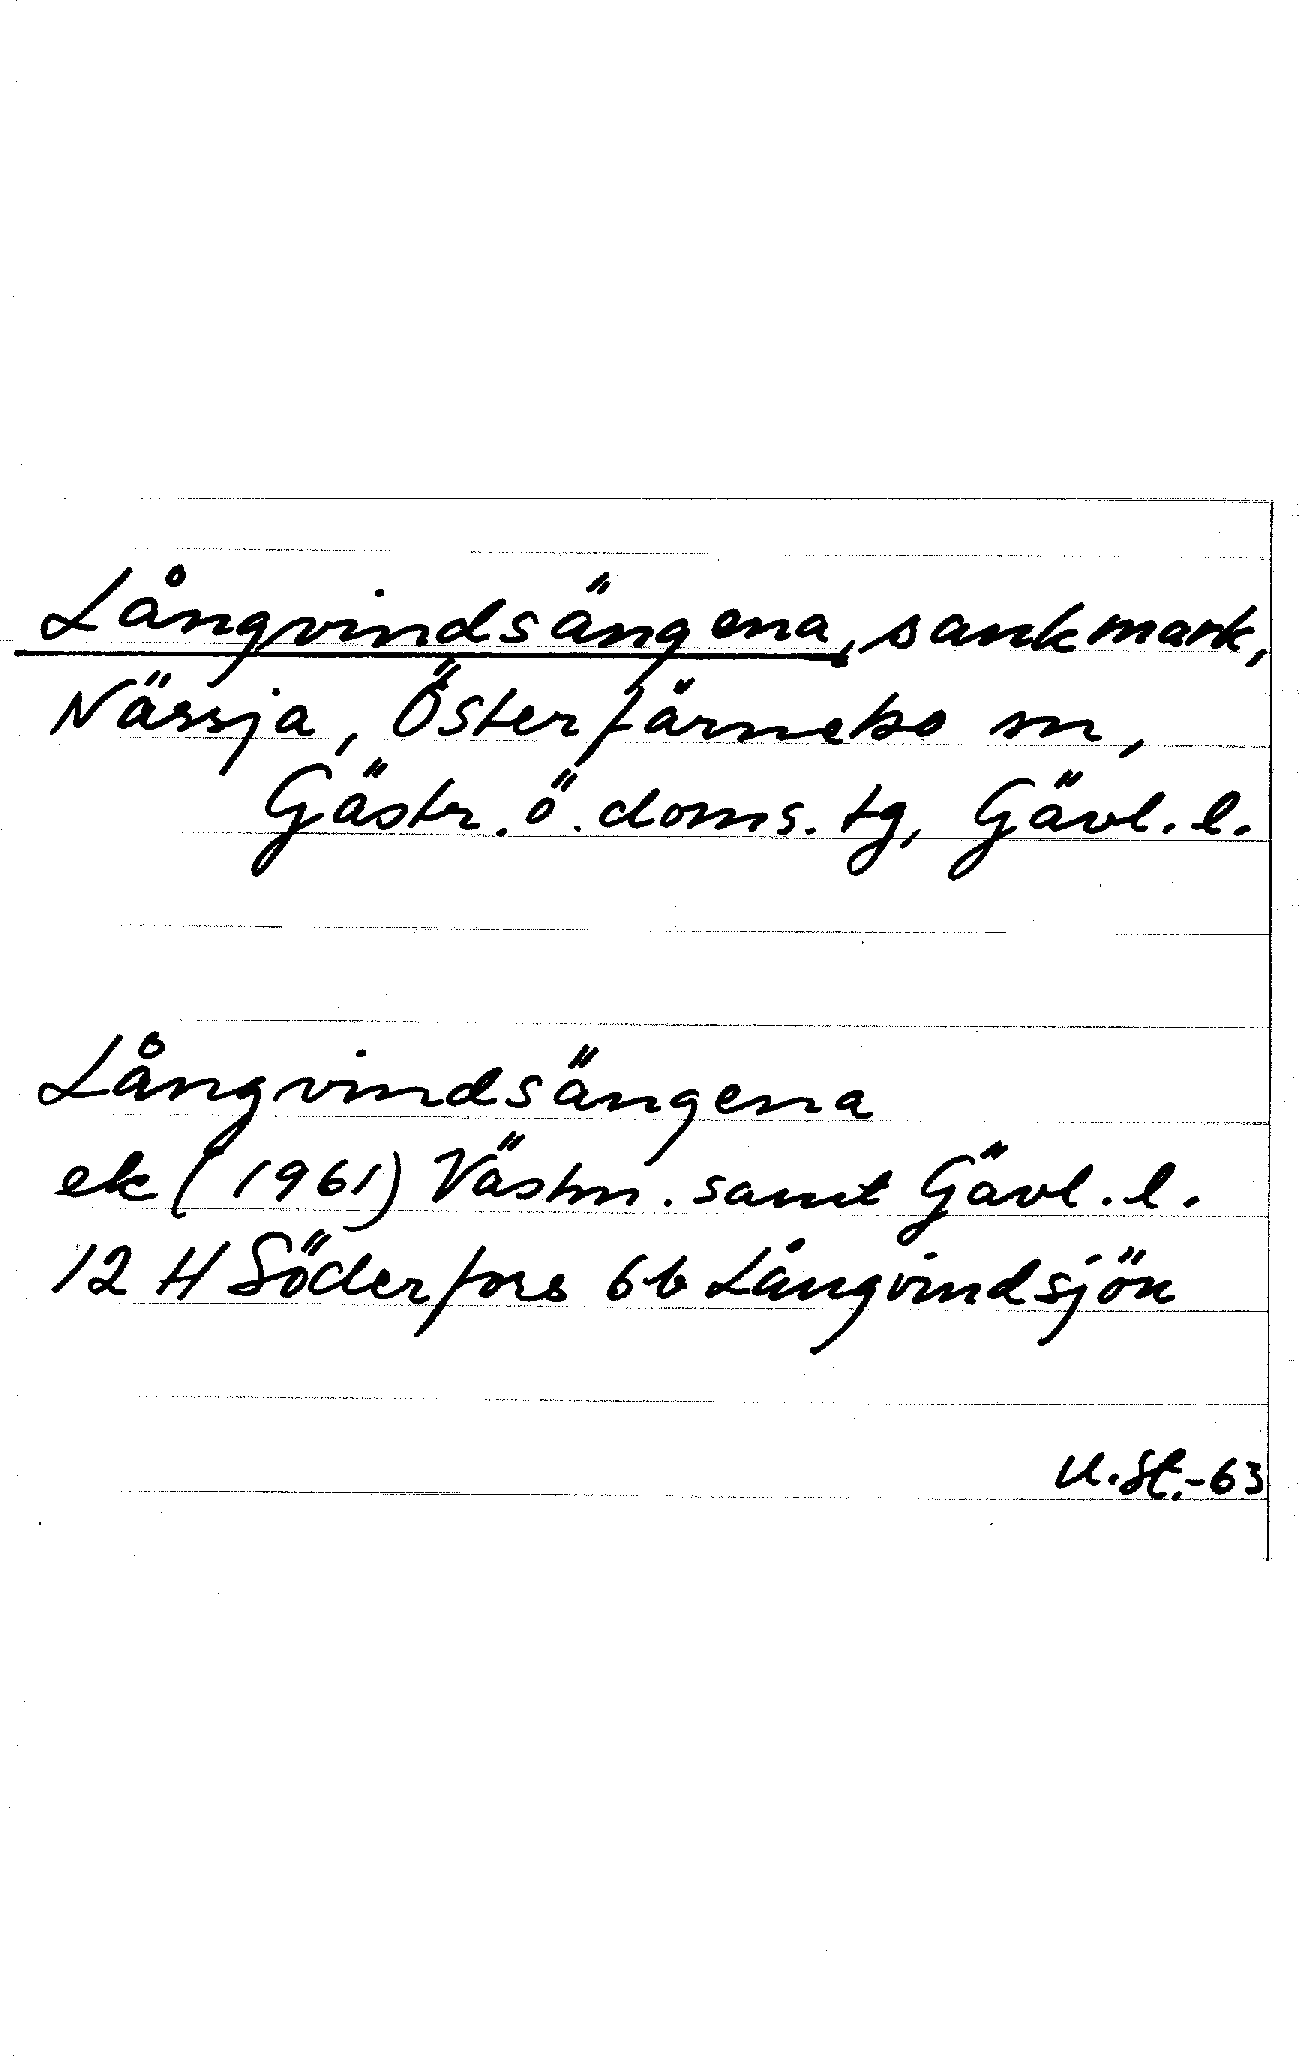 Långvindsängena, sankmark,
Nässja, Österfärnebo sn,
Gästr. ö. doms. tg, Gävl. l.
Långvindsängena
ek (1961) Västm. samt Gävl. l.
12 H Söderfors 6b Långvindsjön
U.St.-63